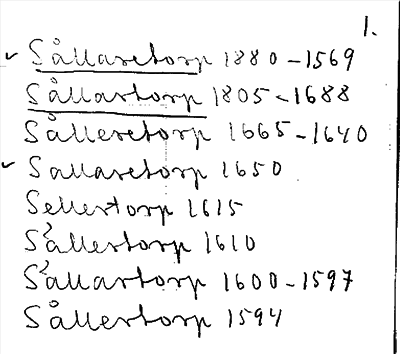 1.
✓ Sållaretorp 1880-1569
Sållartorp 1805-1688
Sålleretorp 1665-1640
✓ Sallaretorp 1650
Sellertorp 1615
Sållestorp 1610
Sållartorp 1600-1597
Sållertorp 1594